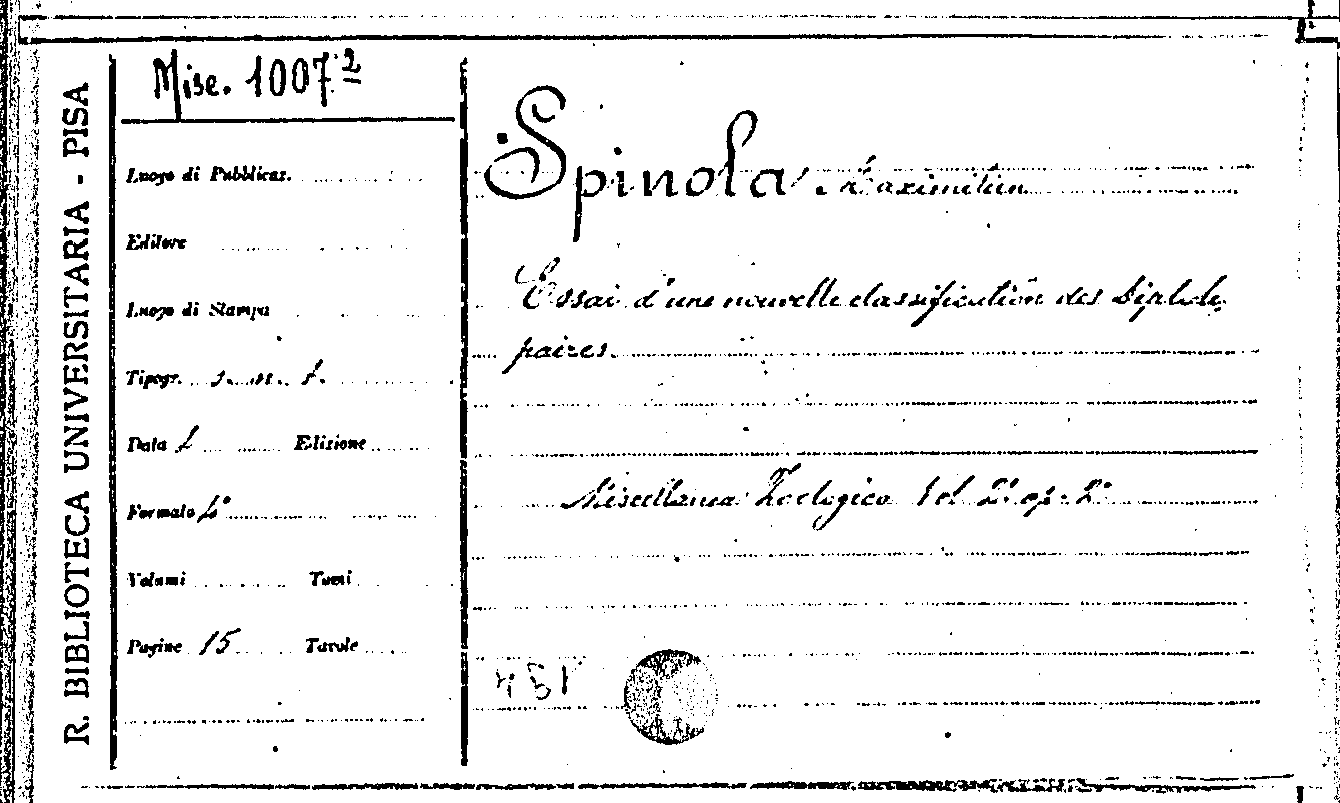 R. BIBLIOTECA UNIVERSITARIA - PISA
Misc. 1007.2
Luogo di Pubblicaz.
Editore
Luogo di Stampa
Tipogr. s. n. t.
Data Edizione
Formato 4°
Volumi Tomi
Pagine 15 Tavole
Spinola, Maximilien
Essai d'une nouvelle classification des Diplole-
paires.
Miscellanea Zoologica Vol. 2° op. 2°